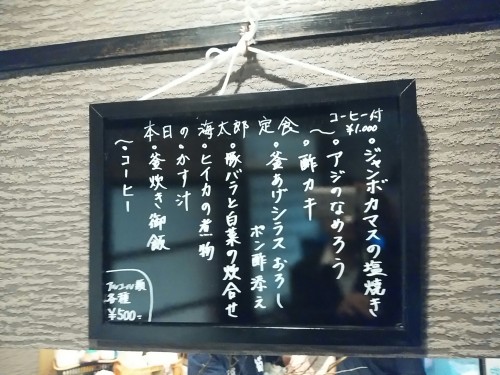 本日の海太郎定食
コーヒー付
¥1,000
〜・ジャンボカマスの塩焼き
・アジのなめろう
・酢カキ
・釜あげシラスおろし
ポン酢添え
・豚バラと白菜の炊合せ
・ヒイカの煮物
・かす汁
・釜炊き御飯
・コーヒー〜
アルコール類
各種
¥500-